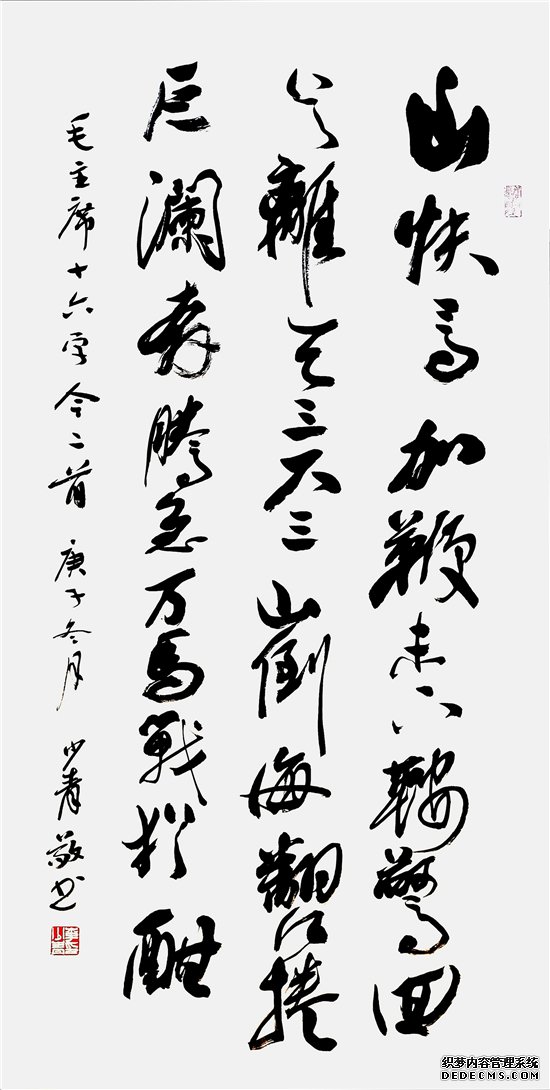 山快馬加鞭未下鞍驚回
首離天三尺三山倒海翻江捲
巨瀾奔騰急万馬戰猶酣
毛主席十六字令二首 庚子冬月 少青敬书
织梦内容管理系统
DEDECMS.COM